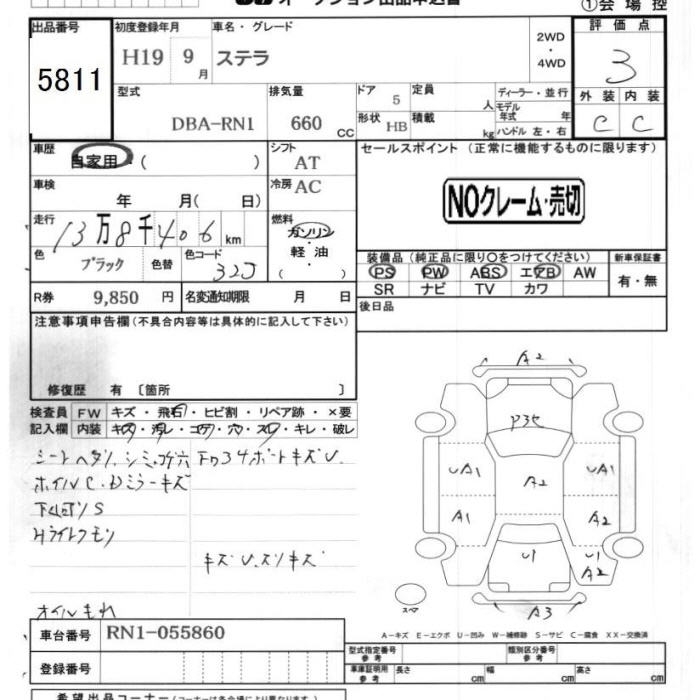 出品番号 5811
初度登録年月 H19 9月
車名・グレード ステラ
2WD
・
4WD
評価点 3
型式 DBA-RN1
排気量 660 CC
ドア 5
形状 HB
定員 人
積載 kg
ディーラー・並行
モデル年式 年
ハンドル 左・右
外装 C
内装 C
車歴 自家用・( )
シフト AT
セールスポイント (正常に機能するものに限ります)
NOクレーム・売切
車検 年 月( 日)
冷房 AC
走行 13万8千406 km
燃料 ガソリン
軽油
( )
色 ブラック 色替 色コード 32J
装備品(純正品に限り〇をつけてください)
PS PW ABS エアB AW
SR ナビ TV カワ
新車保証書
有・無
R券 9,850円
名変通知期限 月 日
後日品
注意事項申告欄(不具合内容等は具体的に記入して下さい)
修復歴 有 〔箇所 〕
検査員記入欄
FW キズ・飛石・ヒビ割・リペア跡・×要
内装 キズ・汚レ・コゲ・穴・スレ・キレ・破レ
ホイルC.Dミラーキズ
キズU.スリキズ
オイルもれ
A2
UA1 A2 UA1
A1 A2
U1 U1
A2
スペア A3
A－キズ E－エクボ U－凹み W－補修跡 S－サビ C－腐食 XX－交換済
車台番号 RN1-055860
登録番号
型式指定番号 参考
類別区分番号 参考
車庫証明用 参考 長さ cm 幅 cm 高さ cm